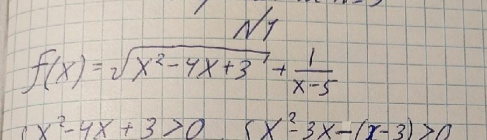 N1
f(x) = √(x² - 4x + 3) + 1/(x - 5)
{x² - 4x + 3 > 0 {x² - 3x - (x - 3) > 0